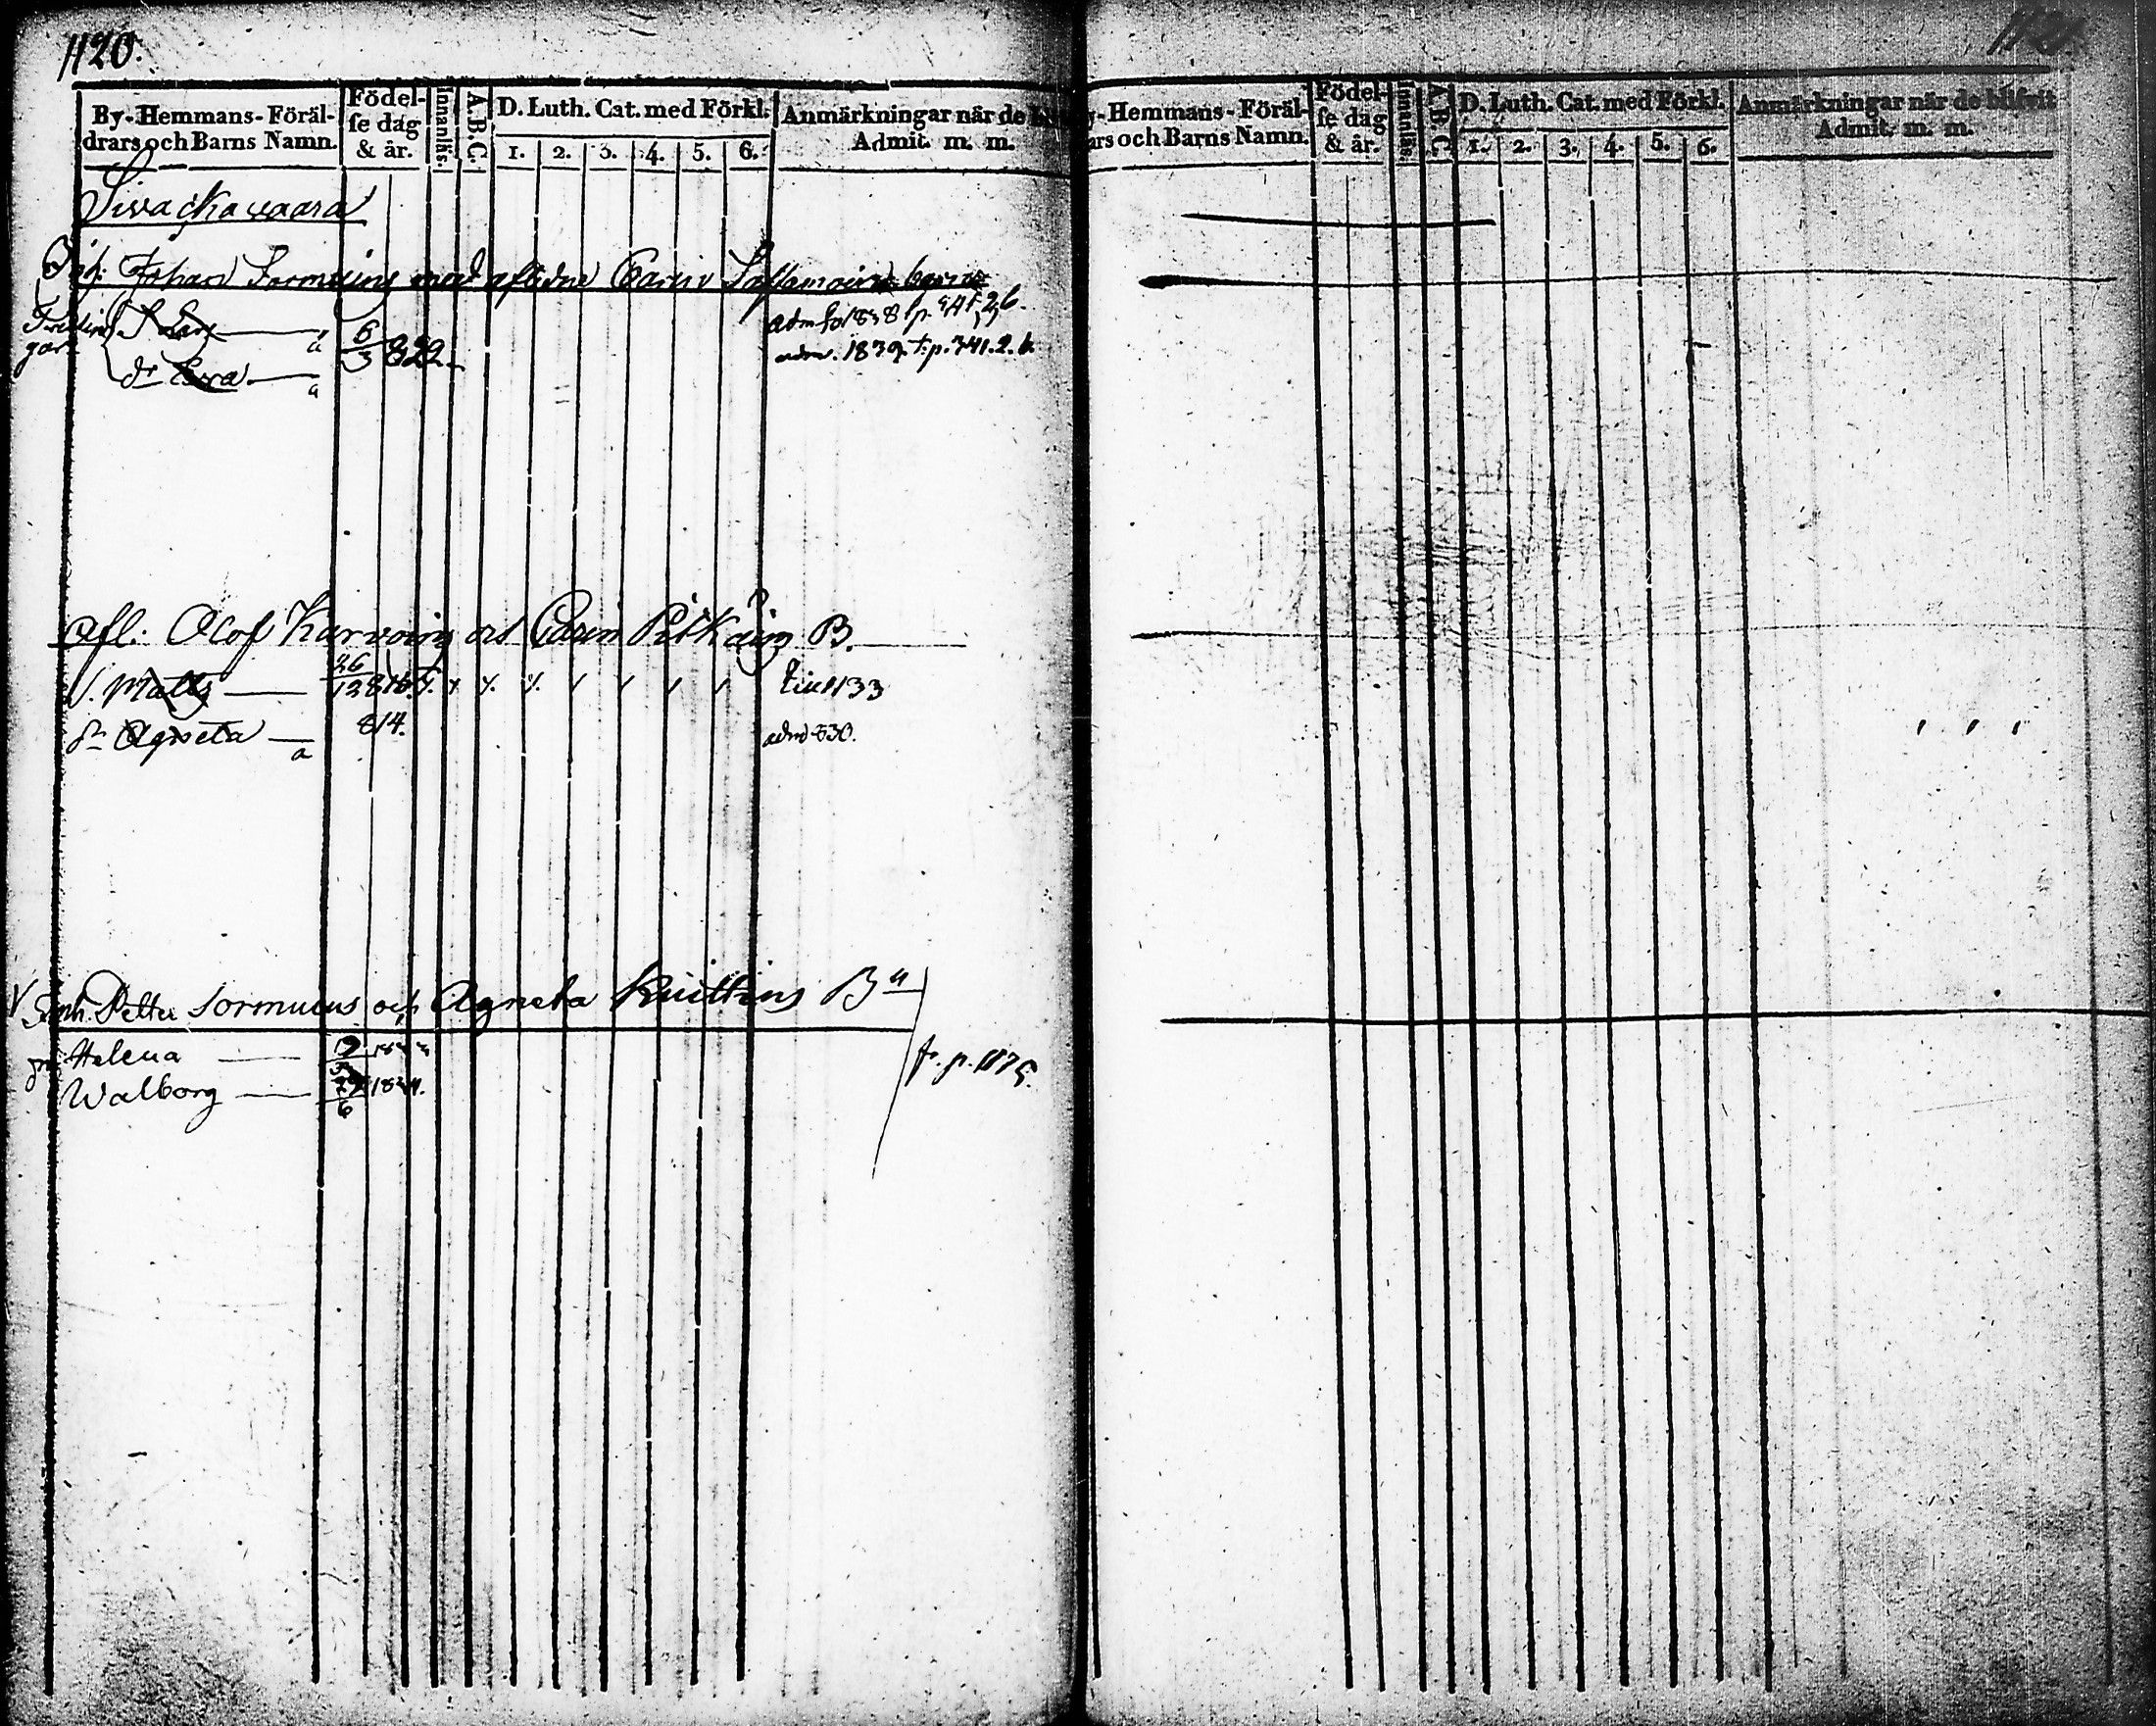 1120.
By-Hemmans-Föräl-
drars och Barns Namn.
Födel-
se dag
& år.
Innanläs.
A.B.C.
D. Luth. Cat. med Förkl.
1. 2. 3. 4. 5. 6.
Anmärkningar når de
Admit. m. m.
Sivackavaara
Inh: Johan Sormuins med aflidne Carin
S. Lars a 6/3 822.
dr Eva a
adm. 1839. f. p. 341. 2. b.
Afl: Olof Karvoins och Carin Pitkäins B.
S. Matts 26/12 816.
1133
dr Agneta a 814.
adm 830.
Inh. Petter Sormuins och Agneta Kuittins Bn
Helena
Walborg 6
f. p. 1175.
y-Hemmans-Föräl-
ars och Barns Namn.
Födel-
se dag
& år.
Innanläs.
A.B.C.
D. Luth. Cat. med Förkl.
1. 2. 3. 4. 5. 6.
Anmärkningar når de blifvit
Admit. m. m.